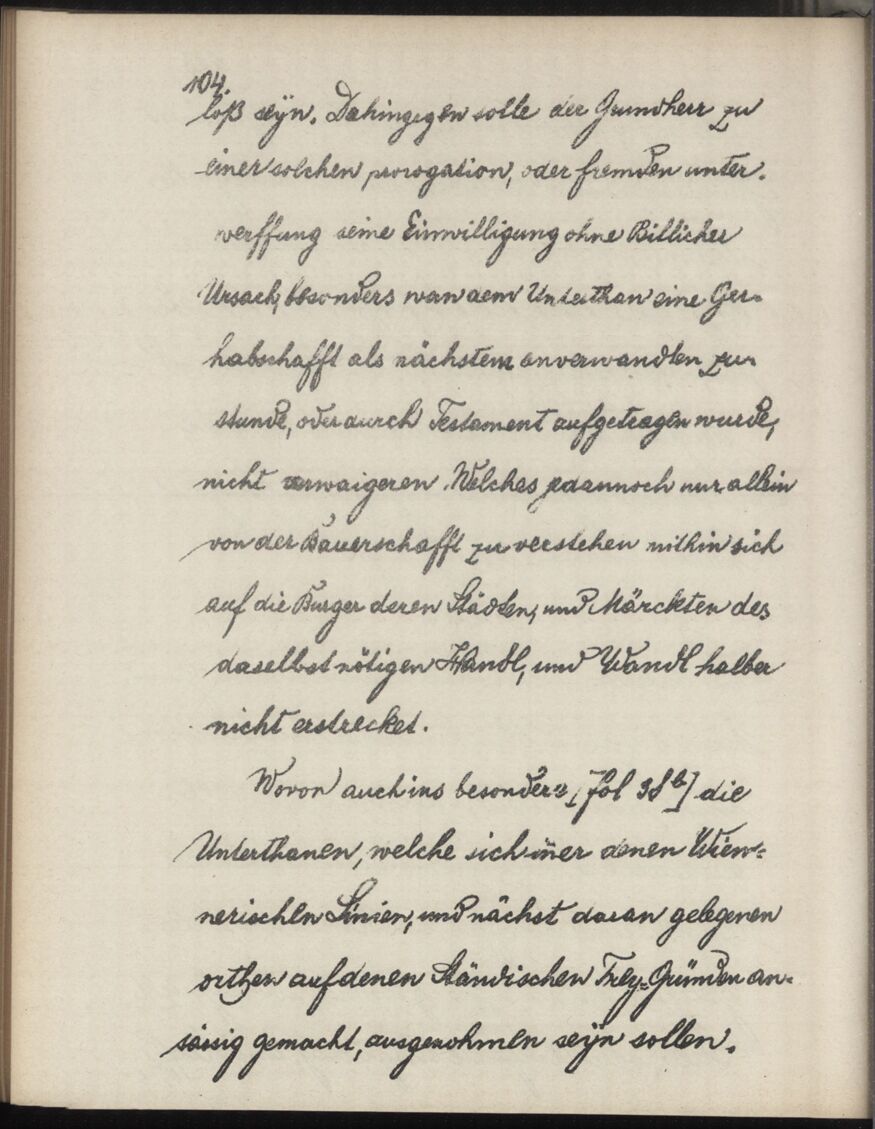 104.
loß seÿn. Dahingegen solte der Grundherr zu
einer solchen prorogation, oder fremden unter-
werffung seine Einwilligung ohne Billicher
Ursach, besonders wan dem Unterthan eine Ger-
habschafft als nächstem anverwandten zu-
stunde, oder durch Testament aufgetragen wurde,
nicht verwaigeren. Welches jedannoch nur allein
von der Bauerschafft zu verstehen mithin sich
auf die Burger deren Städten, und Märckten des
daselbst nötigen Handl, und Wandl halber
nicht erstrecket.
Wovon auch ins besondere [fol 38b] die
Unterthanen, welche sich iñer denen Wien-
nerischen Linien, und nächst daran gelegenen
orthen auf denen Ständischen Frey-Gründen an-
sässig gemacht, ausgenohmen seÿn sollen.